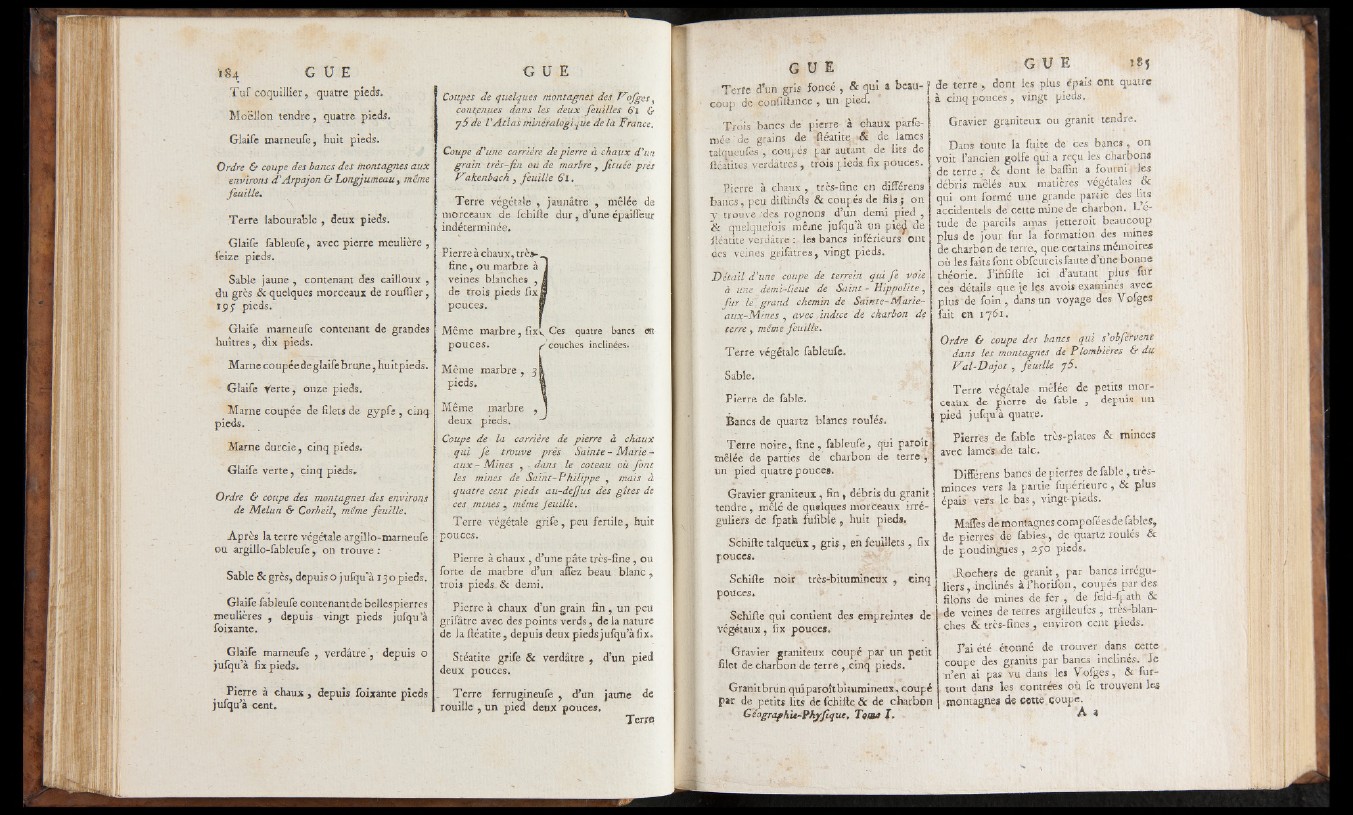 184 GUE
Tuf coquillier, quatre pieds.
Moëllon tendre, quatre pieds.
Glaiſe marneuſe, huit pieds.
Ordre & coupe des bancs des montagnes aux
environs d'Arpajon & Longjumeau, même
feuille.
Terre labourable, deux pieds.
Glaiſe ſableuſe, avec pierre meulière,
ſeize pieds.
Sable jaune, contenant des cailloux,
du grès & quelques morceaux de rouſſier,
195 pieds.
Glaiſe marneuſe contenant de grandes
huîtres, dix pieds.
Marne coupée de glaiſe brune, huit pieds.
Glaiſe verte, onze pieds.
Marne coupée de filets de gypſe, cinq
pieds.
Marne durcie, cinq pieds.
Glaiſe verte, cinq pieds.
Ordre & coupe des montagnes des environs
de Melun & Corbeil, même feuille.
Après la terre végétale argillo-marneuſe
ou argillo-ſableuſe, on trouve :
Sable & grès, depuis 0 juſqu'à 130 pieds.
Glaiſe ſableuſe contenant de belles pierres
meulières, depuis vingt pieds juſqu'à
ſoixante.
Glaiſe marneuſe, verdâtre, depuis 0
juſqu'à ſix pieds.
Pierre à chaux, depuis ſoixante pieds
juſqu'à cent.
GUE
Coupes de quelques montagnes des Voſges,
contenues dans les deux feuilles 61 &
76 de l'Atlas minéralogique de la France.
Coupe d'une carrière de pierre à chaux d'un
grain très-fin ou de marbre, ſituée près
Vakenbach, feuille 61.
Terre végétale, jaunâtre, mêlée de
morceaux de ſchiſte dur, d'une épaiſſeur
indéterminée.
Pierre à chaux, très-
fine, ou marbre à
veines blanches,
de trois pieds ſix
pouces.
Même marbre, ſix
pouces.
Même marbre, 3
pieds.
Même marbre,
deux pieds.
Ces quatre bancs en
couches inclinées.
Coupe de la carrière de pierre à chaux
qui ſe trouve près Sainte-Marie-
aux-Mines, dans le coteau où ſont
les mines de Saint-Philippe, mais à
quatre cent pieds au-deſſus des gîtes de
ces mines, même feuille.
Terre végétale griſe, peu fertile, huit
pouces.
Pierre à chaux, d'une pâte très-fine, ou
ſorte de marbre d'un aſſez beau blanc,
trois pieds & demi.
Pierre à chaux d'un grain fin, un peu
griſâtre avec des points verds, de la nature
de la ſtéatite, depuis deux pieds juſqu'à ſix.
Stéatite griſe & verdâtre, d'un pied
deux pouces.
Terre ferrugineuſe, d'un jaune de
rouille, un pied deux pouces.
Terre
GUE
Terre d'un gris foncé, & qui a beau-
coup de conſiſtance, un pied.
Trois bancs de pierre à chaux parſe-
mée de grains de ſtéatite & de lames
talqueuſes, coupés par autant de lits de
ſtéatites verdâtres, trois pieds ſix pouces.
Pierre à chaux, très-fine en différens
bancs, peu diſtincts & coupés de fils; on
y trouve des rognons d'un demi pied,
& quelquefois même juſqu'à un pied de
ſtéatite verdâtre : les bancs inférieurs ont
des veines griſâtres, vingt pieds.
Détail d'une coupe de terrein qui ſe voie
à une demi-lieue de Saint-Hippolite,
ſur le grand chemin de Sainte-Marie-
aux-Mines, avec indice de charbon de
terre, même feuille.
Terre végétale ſableuſe.
Sable.
Pierre de ſable.
Bancs de quartz blancs roulés.
Terre noire, fine, ſableuſe, qui paroît
mêlée de parties de charbon de terre,
un pied quatre pouces.
Gravier graniteux, fin, débris du granit
tendre, mêlé de quelques morceaux irré-
guliers de ſpath fuſible, huit pieds.
Schiſte talqueux, gris, en feuillets, ſix
pouces.
Schiſte noir très-bitumineux, cinq
pouces.
Schiſte qui contient des empreintes de
végétaux, ſix pouces.
Gravier graniteux coupé par un petit
filet de charbon de terre, cinq pieds.
Granit brun qui paroît bitumineux, coupé
par de petits lits de ſchiſte & de charbon
Géographie-Phyſique. Tome I.
GUE 185
de terre, dont les plus épais ont quatre
à cinq pouces, vingt pieds.
Gravier graniteux ou granit tendre.
Dans toute la ſuite de ces bancs, on
voit l'ancien golfe qui a reçu les charbons
de terre, & dont le baſſin a fourni les
débris mêlés aux matières végétales &
qui ont formé une grande partie des lits
accidentels de cette mine de charbon. L'é-
tude de pareils amas jetteroit beaucoup
plus de jour ſur la formation des mines
de charbon de terre, que certains mémoires
où les faits ſont obſcurcis faute d'une bonne
théorie. J'inſiſte ici d'autant plus ſur
ces détails que je les avois examinés avec
plus de ſoin, dans un voyage des Voſges
fait en 1761.
Ordre & coupe des bancs qui s'obſervent
dans les montagnes de Plombières & du
Val-Dajot, feuille 76.
Terre végétale mêlée de petits mor-
ceaux de pierre de ſable, depuis un
pied juſqu'à quatre.
Pierres de ſable très-plates & minces
avec lames de talc.
Différens bancs de pierres de ſable, très-
minces vers la partie ſupérieure, & plus
épais vers le bas, vingt pieds.
Maſſes de montagnes compoſées de ſables,
de pierres de ſables, de quartz roulés &
de poudingues, 250 pieds.
Rochers de granit, par bancs irrégu-
liers, inclinés à l'horiſon, coupés par des
filons de mines de fer, de feld-ſpath &
de veines de terres argilleuſes, très-blan-
ches & très-fines, environ cent pieds.
J'ai été étonné de trouver dans cette
coupe des granits par bancs inclinés. Je
n'en ai pas vu dans les Voſges, & ſur-
tout dans les contrées où ſe trouvent les
montagnes de cette coupe.
A a